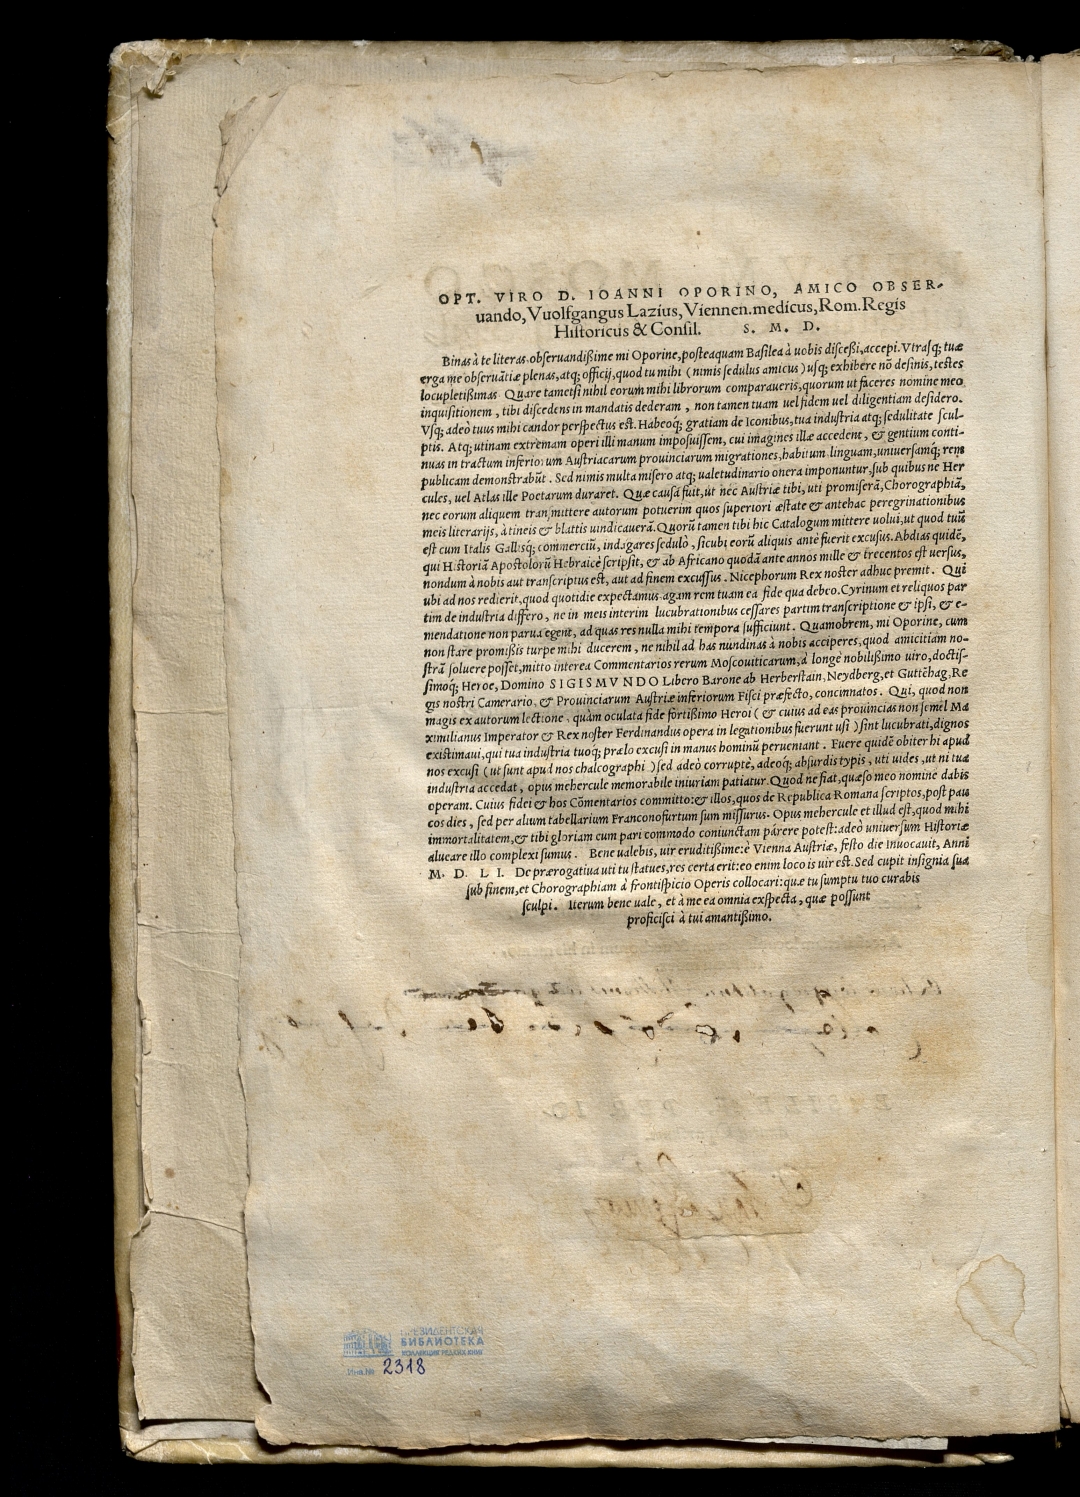 OPT. VIRO D. IOANNI OPORINO, AMICO OBSER-
uando, Vuolfgangus Lazius, Viennen. medicus, Rom. Regis
Historicus & Consil. S. M. D.
Binas à te literas obseruandißime mi Oporine, posteaquam Basilea à uobis discessi, accepi. Vtrasq; tuæ
erga me obseruãtiæ plenas, atq; officij, quod tu mihi (nimis sedulus amicus) usq; exhibere nõ desinis, testes
locupletißimas. Quare tametsi nihil eorum mihi librorum comparaueris, quorum ut faceres nomine meo
inquisitionem, tibi discedens in mandatis dederam, non tamen tuam uel fidem uel diligentiam desidero.
Vsq; adeò tuus mihi candor perspectus est. Habeoq; gratiam de Iconibus, tua industria atq; sedulitate scul-
ptis. Atq; utinam extremam operi illi manum imposuissem, cui imagines illæ accedent, & gentium conti-
nuas in tractum inferiorum Austriacarum prouinciarum migrationes, habitum linguam, uniuersamq; rem
publicam demonstrabũt. Sed nimis multa misero atq; ualetudinario onera imponuntur, sub quibus ne Her
cules, uel Atlas ille Poetarum duraret. Quæ causa fuit, ut nec Austriæ tibi, uti promiserã, Chorographiã,
nec eorum aliquem transmittere autorum potuerim quos superiori æstate & antehac peregrinationibus
meis literarijs, à tineis & blattis uindicauerã. Quorũ tamen tibi hic Catalogum mittere uolui, ut quod tuũ
est cum Italis Gallisq; commerciũ, indagares sedulò, sicubi eorũ aliquis antè fuerit excusus. Abdias quidẽ,
qui Historiã Apostolorũ Hebraicè scripsit, & ab Africano quodã ante annos mille & trecentos est uersus,
nondum à nobis aut transcriptus est, aut ad finem excussus. Nicephorum Rex noster adhuc premit. Qui
ubi ad nos redierit, quod quotidie expectamus, agam rem tuam ea fide qua debeo. Cyrinum et reliquos par
tim de industria differo, ne in meis interim lucubrationibus cessares partim transcriptione & ipsi, & e-
mendatione non parua egent, ad quas res nulla mihi tempora sufficiunt. Quamobrem, mi Oporine, cum
non stare promißis turpe mihi ducerem, ne nihil ad has nundinas à nobis acciperes, quod amicitiam no-
strã soluere posset, mitto interea Commentarios rerum Moscouiticarum, à longè nobilißimo uiro, doctis-
simoq; Heroe, Domino SIGISMVNDO Libero Barone ab Herberstain, Neydberg, et Guttẽhag, Re
gis nostri Camerario, & Prouinciarum Austriæ inferiorum Fisci præfecto, concinnatos. Qui, quod non
magis ex autorum lectione, quàm oculata fide fortißimo Heroi (& cuius ad eas prouincias non semel Ma
ximilianus Imperator & Rex noster Ferdinandus opera in legationibus fuerunt usi) sint lucubrati, dignos
existimaui, qui tua industria tuoq; prælo excusi in manus hominũ perueniant. Fuere quidẽ obiter hi apud
nos excusi (ut sunt apud nos chalcographi) sed adeò corruptè, adeoq; absurdis typis, uti uides, ut ni tua
industria accedat, opus mehercule memorabile iniuriam patiatur. Quod ne fiat, quæso meo nomine dabis
operam. Cuius fidei & hos Cõmentarios committo: & illos, quos de Republica Romana scriptos, post pau
cos dies, sed per alium tabellarium Franconofurtum sum missurus. Opus mehercule et illud est, quod mihi
immortalitatem, & tibi gloriam cum pari commodo coniunctam párere potest: adeò uniuersum Historiæ
alueare illo complexi sumus. Bene ualebis, uir eruditißime: è Vienna Austriæ, festo die Inuocauit, Anni
M. D. L I. De prærogatiua uti tu statues, res certa erit: eo enim loco is uir est. Sed cupit insignia sua
sub finem, et Chorographiam à frontispicio Operis collocari: quæ tu sumptu tuo curabis
sculpi. Iterum bene uale, et à me ea omnia exspecta, quæ possunt
proficisci à tui amantißimo.
ПРЕЗИДЕНТСКАЯ
БИБЛИОТЕКА
КОЛЛЕКЦИЯ РЕДКИХ КНИГ
Инв.№ 2318